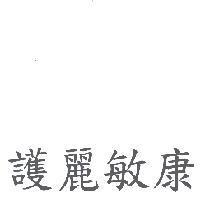 護麗敏康